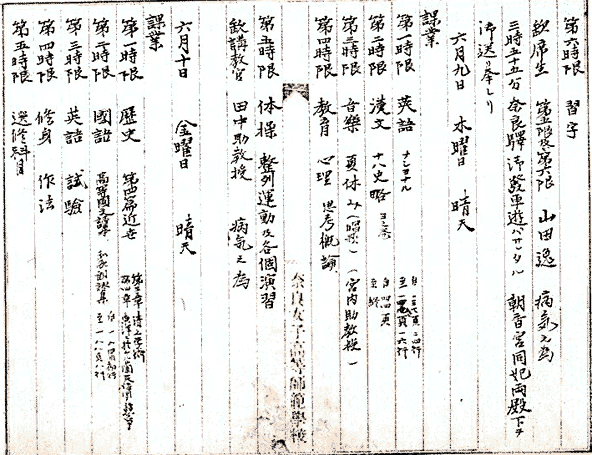 第六時限 習字
欠席生 第五限及第六限 山田逸 病気之為
三時五十五分奈良驛御發車遊バサレタル 朝香宮同妃両殿下ヲ
御送リ奉レリ
六月九日 木曜日 晴天
課業
第一時限 英語 ナショナル 自一三七頁一四行 至一四〇頁一六行
第二時限 漢文 十八史略
第三時限 音樂 夏休み(唱歌)(宮内助教授)
第四時限 教育 心理 思考概論
第五時限 体操 整列運動及各個演習
欠講教官 田中助教授 病気之為
六月十日 金曜日 晴天
課業
第一時限 歴史 第四篇近世
第二時限 國語
第三時限 英語 試驗
第四時限 修身 作法
第五時限 選修科目
奈良女子高等師範學校